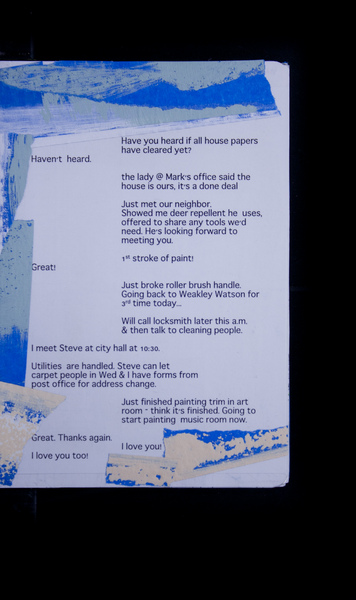 Have you heard if all house papers
have cleared yet?
Haven't heard.
the lady @ Mark's office said the
house is ours, it's a done deal
Just met our neighbor.
Showed me deer repellent he uses,
offered to share any tools we'd
need. He's looking forward to
meeting you.
1st stroke of paint!
Great!
Just broke roller brush handle.
Going back to Weakley Watson for
3rd time today...
Will call locksmith later this a.m.
& then talk to cleaning people.
I meet Steve at city hall at 10:30.
Utilities are handled. Steve can let
carpet people in Wed & I have forms from
post office for address change.
Just finished painting trim in art
room - think it's finished. Going to
start painting music room now.
Great. Thanks again.
I love you!
I love you too!